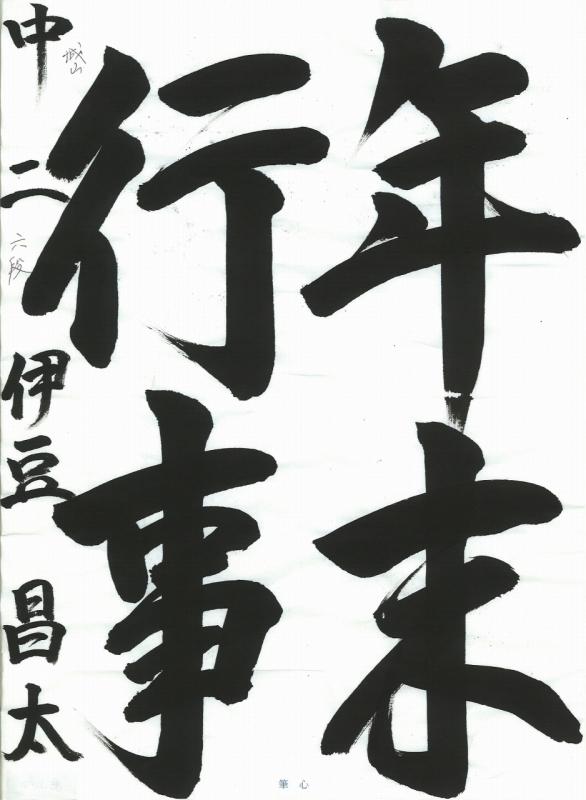 年末
行事
中二 伊豆昌太
城山
六段
筆心